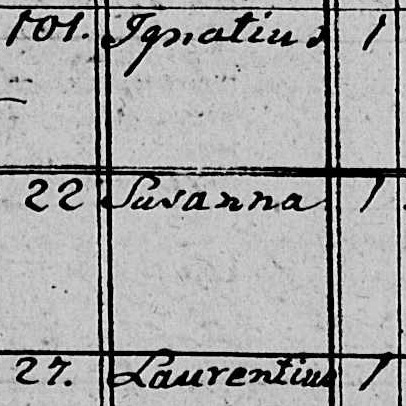 101. Ignatius 1
22 Susanna 1
27. Laurentius 1